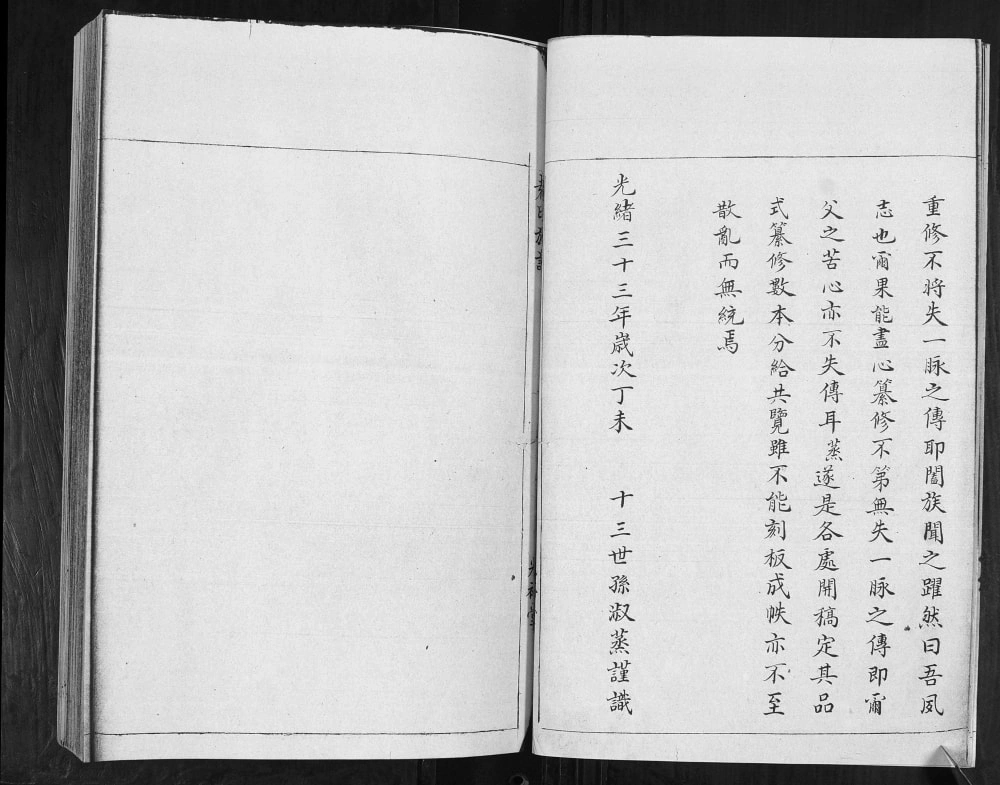 重修不將失一脉之傳耶闔族聞之躍然曰吾夙
志也爾果能盡心纂修不第無失一脉之傳即爾
父之苦心亦不失傳耳蒸遂是各處開稿定其品
式纂修數本分給共覽雖不能刻板成帙亦不至
散亂而無統焉
光緒三十三年歲次丁未 十三世孫淑蒸謹識